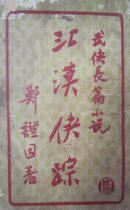 武俠長篇小説
江漢俠踪
鄭證因著